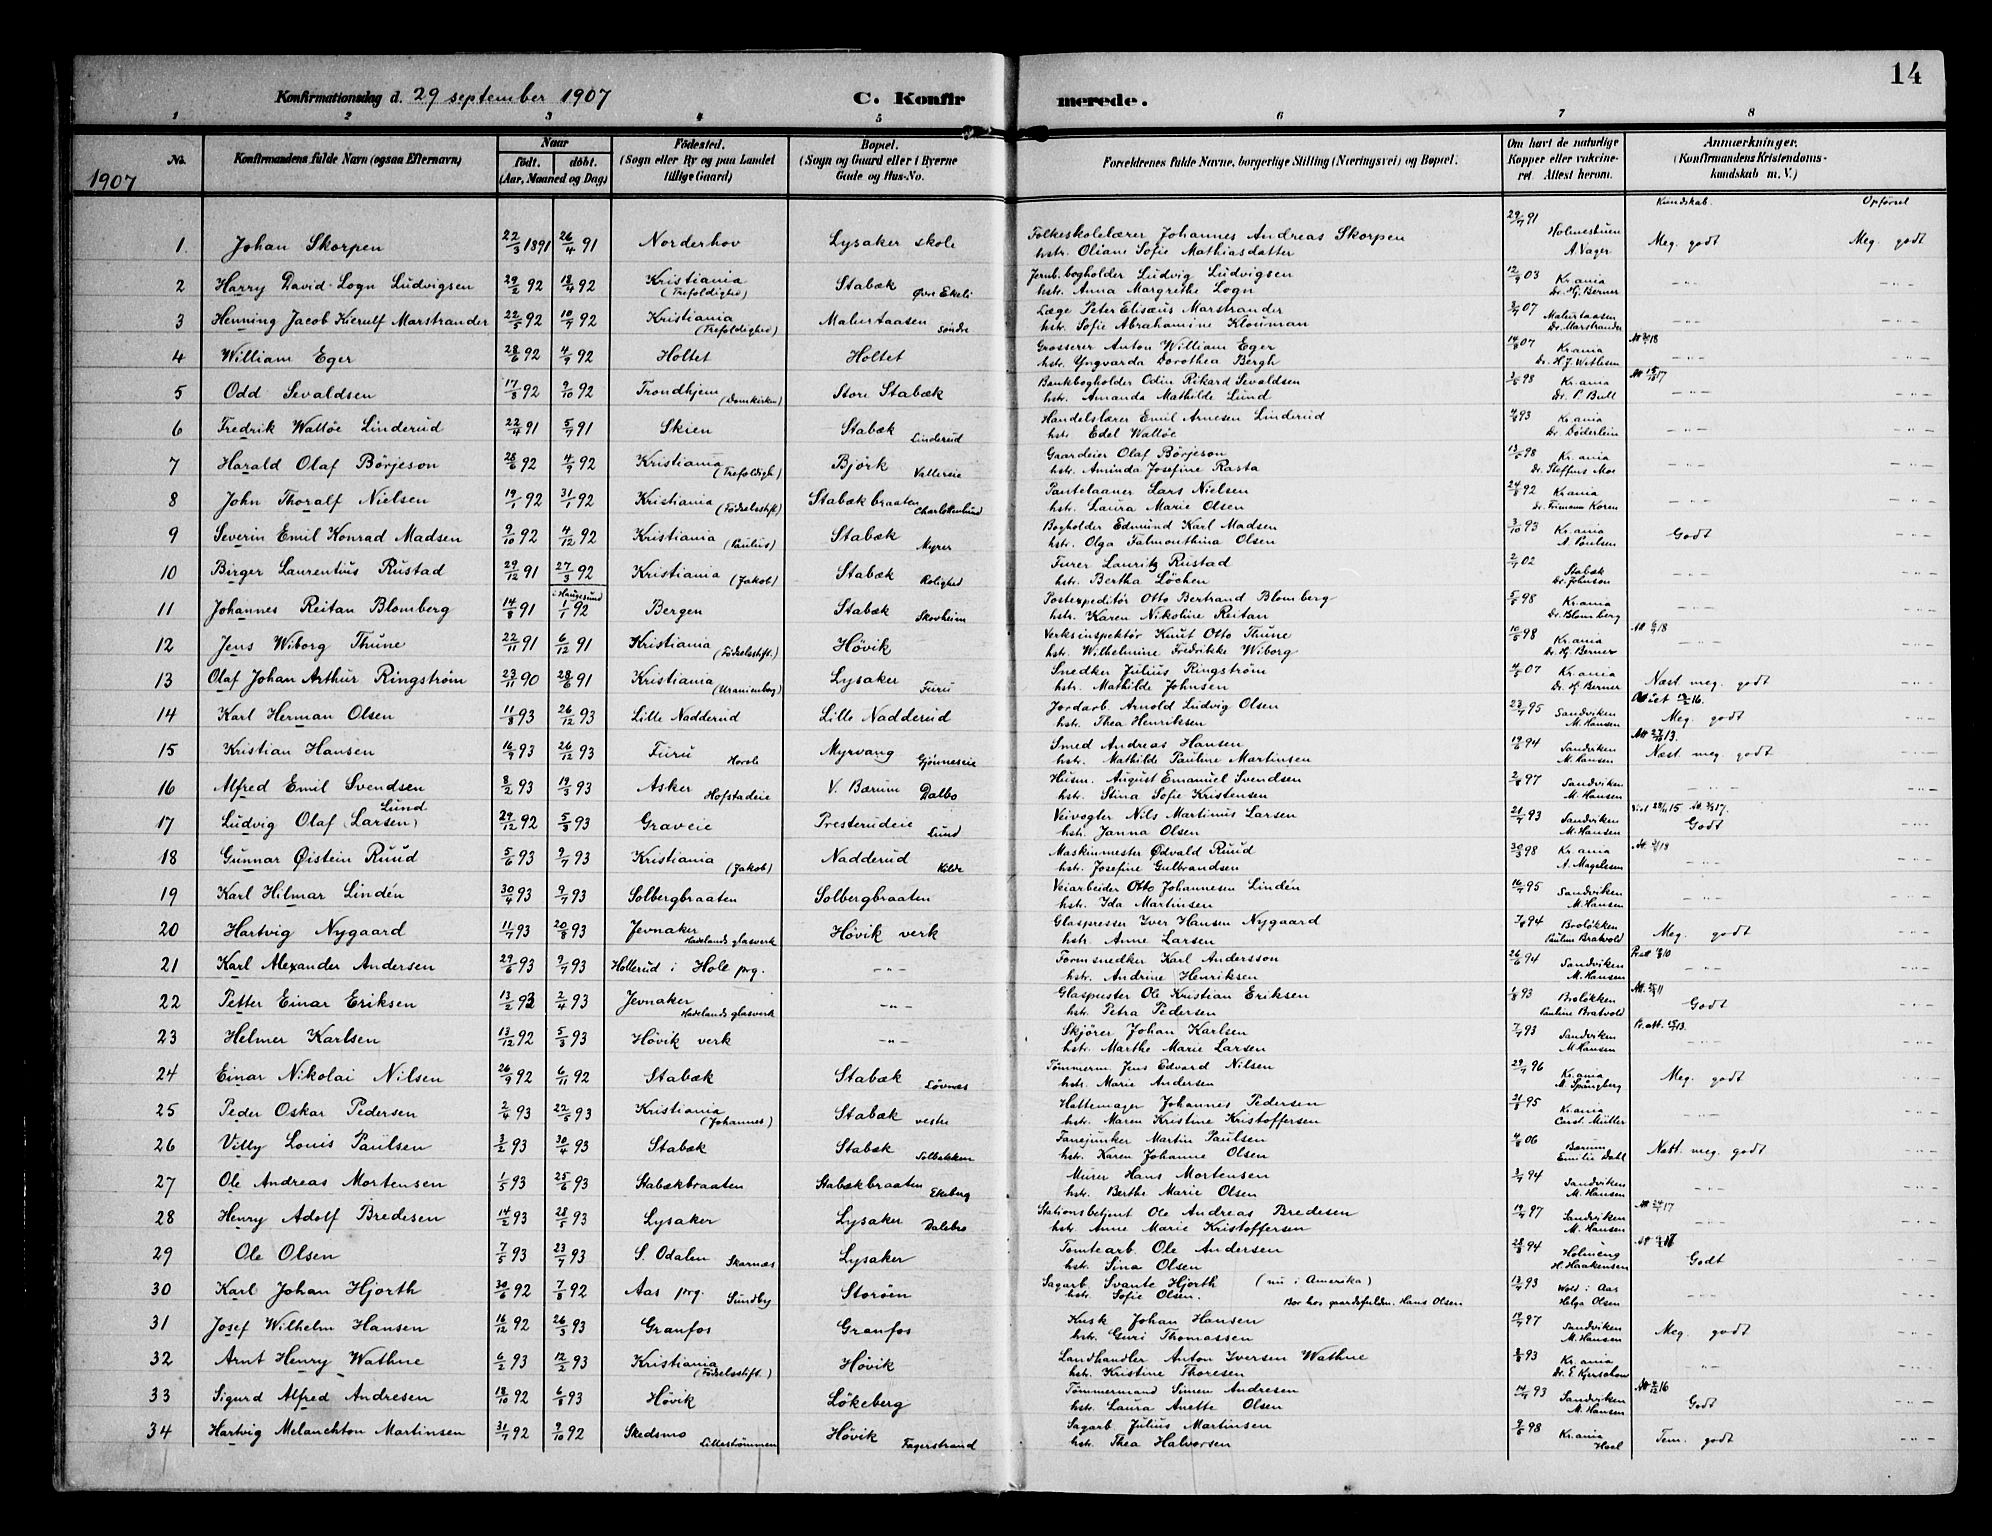 14
Konfirmationsdag d. 29 september 1907 C. Konfirmerede.
1 2 3 4 5 6 7 8
1907
No. Konfirmandens fulde Navn (ogsaa Efternavn) Naar født. døbt. (Aar, Maaned og Dag) Fødested. (Sogn eller By og paa Landet tillige Gaard) Bopæl. (Sogn og Gaard eller i Byerne Gade og Hus-No. Forældrenes fulde Navne, borgerlige Stilling (Næringsvei) og Bopæl. Om havt de naturlige Kopper eller vakcineret. Attest herom. Anmærkninger. (Konfirmandens Kristendomskundskab m. V.)
Kundskab. Opførsel
1. Johan Skorpen 22/3 1891 26/4 91 Norderhov Lysaker skole Folkeskolelærer Johannes Andreas Skorpen hstr. Oliane Sofie Mathiasdatter 29/7 91 Holmestuen A. Vager Meg. godt Meg. godt
2 Harry David Logn Ludvigsen 29/2 92 18/4 92 Kristiania (Trefoldighed) Stabæk Øvre Ekeli Jernb. bogholder Ludvig Ludvigsen hstr. Anna Margrethe Logn 12/9 03 Kr.ania Dr. Hj. Berner -"- -"-
3 Henning Jacob Kierulf Marstrander 22/5 92 10/7 92 Kristiania (Trefoldighed) Malurtaasen Søndre Læge Peter Elisæus Marstrander hstr. Sofie Abrahamine Klouman 07 Malurtaasen Dr. Marstrander -"- -"-
4 William Eger 28/6 92 4/9 92 Holtet Holtet Grosserer Anton William Eger hstr. Yngvarda Dorothea Bergh 14/8 07 Kr.ania Dr. H.J. Vetlesen -"- -"-
5 Odd Sevaldsen 17/8 92 9/10 92 Trondhjem (Domkirken) Store Stabæk Bankbogholder Odin Rikard Sevaldsen hstr. Amanda Mathilde Lund 98 Kr.ania Dr. P. Bull -"- -"-
6 Fredrik Walløe Linderud 22/4 91 5/7 91 Skien Stabæk Linderud Handelslærer Emil Arnesen Linderud hstr. Edel Walløe 93 Kr.ania Dr. Döderlein -"- -"-
7 Harald Olaf Børjeson 28/6 92 4/9 92 Kristiania (Trefoldigh) Bjørk Vallereie Gaardeier Olaf Børjeson hstr. Aminda Josefine Rasta 98 Kr.ania Dr. Steffens Moe -"- -"-
8 John Thoralf Nielsen 19/1 92 31/1 92 Kristiania (Fødselsstift) Stabækbraaten Charlottenlund Pantelaaner Lars Nielsen hstr. Laura Marie Olsen 24/8 92 Kr.ania Dr. Firmann Koren -"- -"-
9 Severin Emil Konrad Madsen 9/10 92 4/12 92 Kristiania (Paulus) Stabæk Myrer Bogholder Edmund Karl Madsen hstr. Olga Talmonthina Olsen 3/10 93 Kr.ania A. Poulsen Godt -"-
10 Birger Laurentius Rustad 29/12 91 27/3 92 Kristiania (Jakob) Stabæk Rolighed Furer Lauritz Rustad hstr. Bertha Løchen 02 Stabæk Dr. Johnson -"- -"-
11 Johannes Reitan Blomberg 14/8 91 i Haugesund 1/1 92 Bergen Stabæk Skovheim Postexpeditør Otto Bertrand Blomberg hstr. Karen Nikoline Reitan 98 Kr.ania Dr. Blomberg -"- -"-
12 Jens Wiborg Thune 22/11 91 6/12 91 Kristiania (Fødselsstift.) Høvik Verksinspektør Knut Otto Thune hstr. Wilhelmine Fredrikke Wiborg 98 Kr.ania Dr. Hj. Berner -"- -"-
13 Olaf Johan Arthur Ringstrøm 23/11 90 28/6 91 Kristiania (Uranienborg) Lysaker Furu Snedker Julius Ringstrøm hstr. Mathilde Johnsen 07 Kr.ania Dr. Hj. Berner Næst meg. godt -"-
14 Karl Herman Olsen 11/8 93 26/12 93 Lille Nadderud Lille Nadderud Jordarb. Arnold Ludvig Olsen hstr. Thea Henriksen 23/7 95 Sandviken M. Hansen Meg. godt -"-
15 Kristian Hansen 16/9 93 26/12 93 Furu Hosle Myrvang Gjønneseie Smed Andreas Hansen hstr. Mathilde Pauline Martinsen 19/6 94 Sandviken M. Hansen Næst meg. godt -"-
16 Alfred Emil Svendsen 8/2 93 19/3 93 Asker Hofstadeie V. Bærum Dalbo Husm. August Emanuel Svendsen hstr. Stina Sofie Kristensen 97 Sandviken M. Hansen -"- -"-
17 Ludvig Olaf (Larsen) Lund 29/12 92 5/3 93 Graveie Presterudeie Lund Veivogter Nils Martinus Larsen hstr. Janna Olsen 21/7 93 Sandviken M. Hansen Godt -"-
18 Gunnar Øistein Ruud 5/6 93 9/7 93 Kristiania (Jakob) Nadderud Kilde Maskinmester Edvald Ruud hstr. Josefine Gulbrandsen 30/3 98 Kr.ania A. Magelssen -"- -"-
19 Karl Hilmar Lindén 30/4 93 9/7 93 Solbergbraaten Solbergbraaten Veiarbeider Otto Johannesen Lindén hstr. Ida Martinsen 16/7 95 Sandviken M. Hansen -"- -"-
20 Hartvig Nygaard 11/7 93 20/8 93 Jevnaker Hadelands glasverk Høvik verk Glaspresser Iver Hansen Nygaard hstr. Anne Larsen 7/8 94 Broløkken Pauline Bratvold Meg. godt -"-
21 Karl Alexander Andersen 29/6 93 9/7 93 Hollerud i Hole prg. -"- Formsnedker Karl Andersson hstr. Andrine Henriksen 26/6 94 Sandviken M. Hansen -"- -"-
22 Petter Einar Eriksen 13/2 93 2/4 93 Jevnaker Hadelands glasverk -"- Glaspuster Ole Kristian Eriksen hstr. Petra Pedersen 93 Broløkken Pauline Bratvold Godt -"-
23 Helmer Karlsen 13/12 92 5/3 93 Høvik verk -"- Skjører Johan Karlsen hstr. Marthe Marie Larsen 7/7 93 Sandviken M. Hansen -"- -"-
24 Einar Nikolai Nilsen 26/9 92 6/11 92 Stabæk Stabæk Løvnæs Tømmerm. Jens Edvard Nilsen hstr. Marie Andersen 29/7 96 Kr.ania M. Spångberg Meg. godt -"-
25 Peder Oskar Pedersen 2/4 93 22/5 93 Kristiania (Johannes) Stabæk vestre Hattemager Johannes Pedersen hstr. Maren Kristine Kristoffersen 21/8 95 Kr.ania Carol. Müller -"- -"-
26 Villy Louis Paulsen 3/2 93 30/4 93 Stabæk Stabæk Solbakken Fanejunker Martin Paulsen hstr. Karen Johanne Olsen 4/8 06 Bærum Emilie Dahl Næst. meg. godt -"-
27 Ole Andreas Mortensen 1/5 93 25/6 93 Stabækbraaten Stabækbraaten Ekeberg Murer Hans Mortensen hstr. Berthe Marie Olsen 3/7 94 Sandviken M. Hansen -"- -"-
28 Henry Adolf Bredesen 14/2 93 28/5 93 Lysaker Lysaker Dalebro Stationsbetjent Ole Andreas Bredesen hstr. Anne Marie Kristoffersen 97 Sandviken M. Hansen -"- -"-
29 Ole Olsen 7/5 93 23/7 93 S. Odalen Skarnæs Lysaker Tomtearb. Ole Andersen hstr. Sina Olsen 28/8 94 Holmeng H. Haakensen Godt -"-
30 Karl Johan Hjorth 30/6 92 7/8 92 Aas prg. Sundby Storøen Sagarb. Svante Hjorth (nu i Amerika) hstr. Sofie Olsen. Bor hos gaardsfuldm. Hans Olsen 93 Wold i Aas Helga Olsen -"- -"-
31 Josef Wilhelm Hansen 16/12 92 26/3 93 Granfos Granfos Kusk Johan Hansen hstr. Guri Thomassen 97 Sandviken M. Hansen Meg godt -"-
32 Arnt Henry Wathne 6/2 93 12/2 93 Kristiania (Fødselsstift.) Høvik Landhandler Anton Iversen Wathne hstr. Kristine Thoresen 93 Kr.ania -"- -"-
33 Sigurd Alfred Andresen 18/10 92 6/8 93 Høvik Løkeberg Tømmermand Simen Andresen hstr. Laura Anette Olsen 93 Sandviken M. Hansen Godt -"-
34 Hartvig Melanchton Martinsen 31/7 92 9/10 92 Skedsmo Lillestømmen Høvik Fagerstrand Sagarb. Julius Martinsen hstr. Thea Halvorsen 98 Kr.ania Hoel Tem. godt -"-